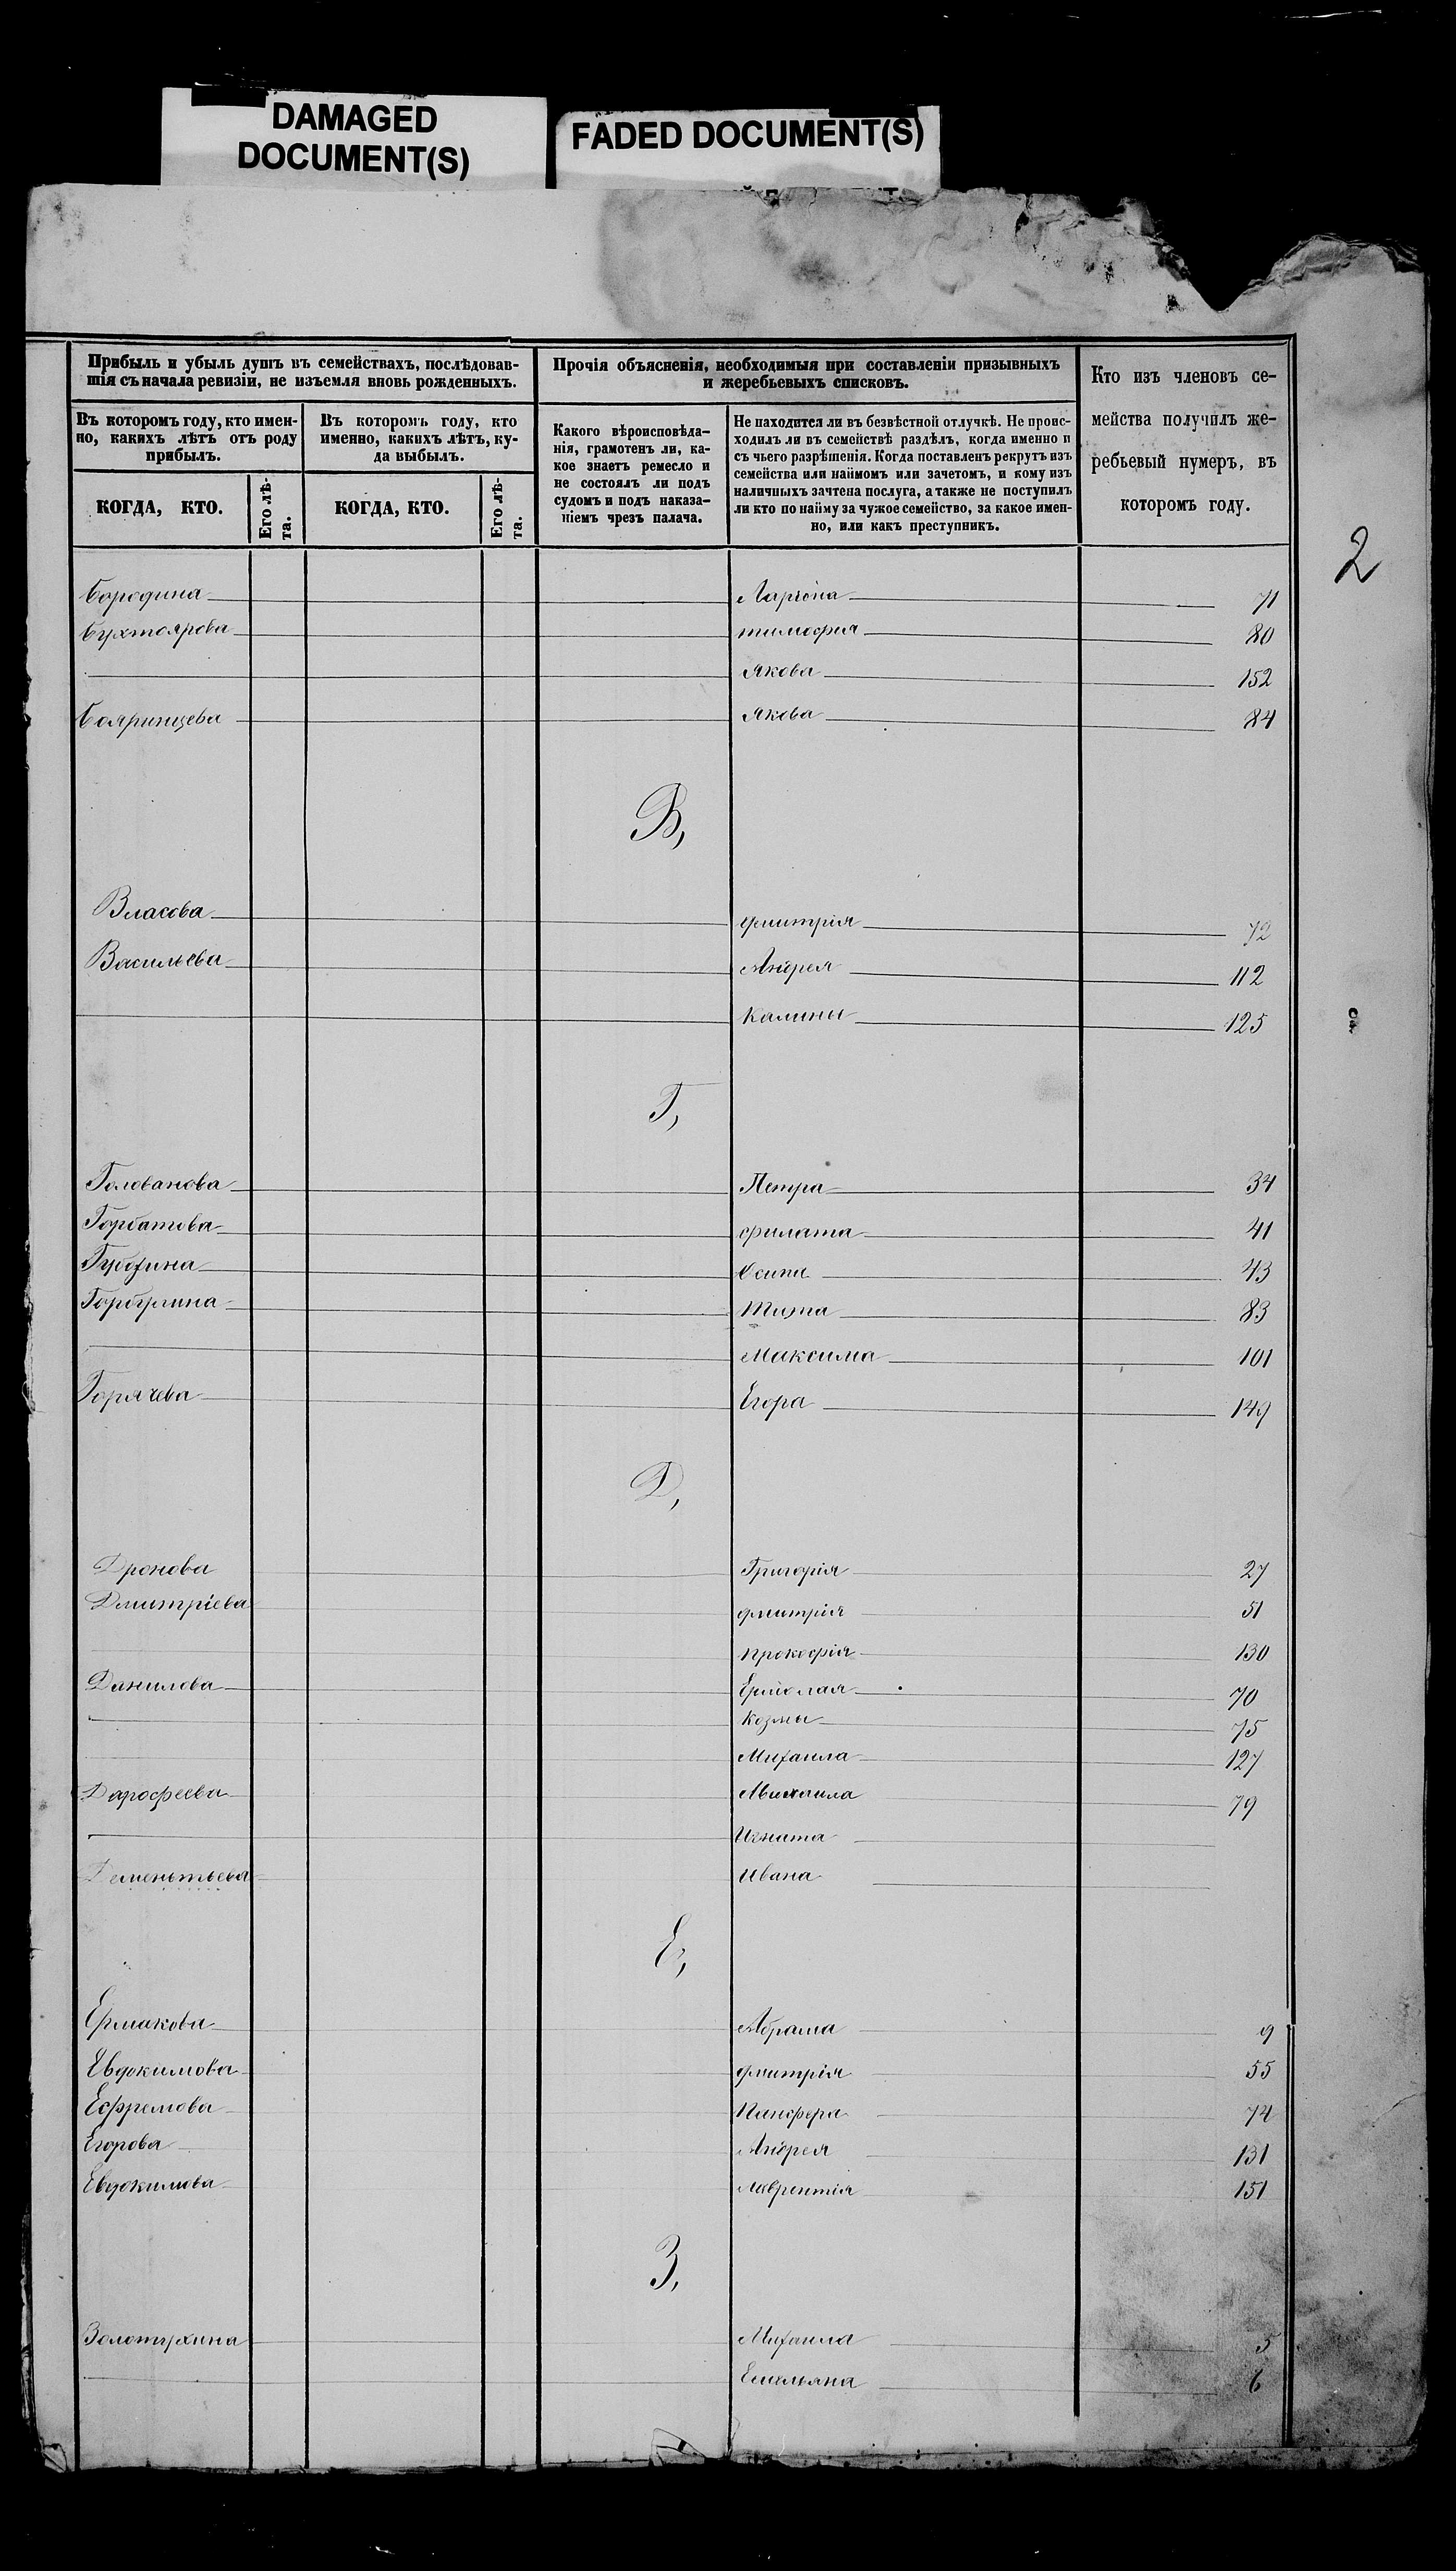 DAMAGED
DOCUMENT(S)
FADED DOCUMENT(S)
Прибыль и убыль душъ въ семействахъ, послѣдовав-
шія съ начала ревизіи, не изъемля вновь рожденныхъ.
Въ которомъ году, кто имен-
но, какихъ лѣтъ отъ роду
прибылъ.
КОГДА, КТО.
Его лѣ-
та.
Въ которомъ году, кто
именно, какихъ лѣтъ, ку-
да выбылъ.
КОГДА, КТО.
Его лѣ-
та.
Прочія объясненія, необходимыя при составленіи призывныхъ
и жеребьевыхъ списковъ.
Какого вѣроисповѣда-
нія, грамотенъ ли, ка-
кое знаетъ ремесло и
не состоялъ ли подъ
судомъ и подъ наказа-
ніемъ чрезъ палача.
Не находится ли въ безвѣстной отлучкѣ. Не проис-
ходилъ ли въ семействѣ раздѣлъ, когда именно и
съ чьего разрѣшенія. Когда поставленъ рекрутъ изъ
семейства или наймомъ или зачетомъ, и кому изъ
наличныхъ зачтена послуга, а также не поступилъ
ли кто по найму за чужое семейство, за какое имен-
но, или какъ преступникъ.
Кто изъ членовъ се-
мейства получилъ же-
ребьевый нумеръ, въ
которомъ году.
2
Бородина Ларіона 71
Бухтоярова тимофея 80
Якова 152
Бояринцева Якова 84
В,
Власова дмитрія 72
Васильева Андрея 112
Калины 125
Г,
Голованова Петра 34
Горбатова филата 41
Губина Осипа 43
Горбулина Тита 83
Максима 101
Горячева Егора 149
Д,
Дронова Григорія 27
Дмитріева дмитрія 51
прокофія 130
Данилова Ермолая 70
козмы 75
Михаила 127
Дарофеева Михаила 79
Игната
Дементьева Ивана
Е,
Ермакова Абрама 9
Евдокимова дмитрія 55
Ефремова Панфера 74
Егорова Андрея 131
Евдокимова лаврентія 151
З,
Золотухина Михаила 5
Емельяна 6